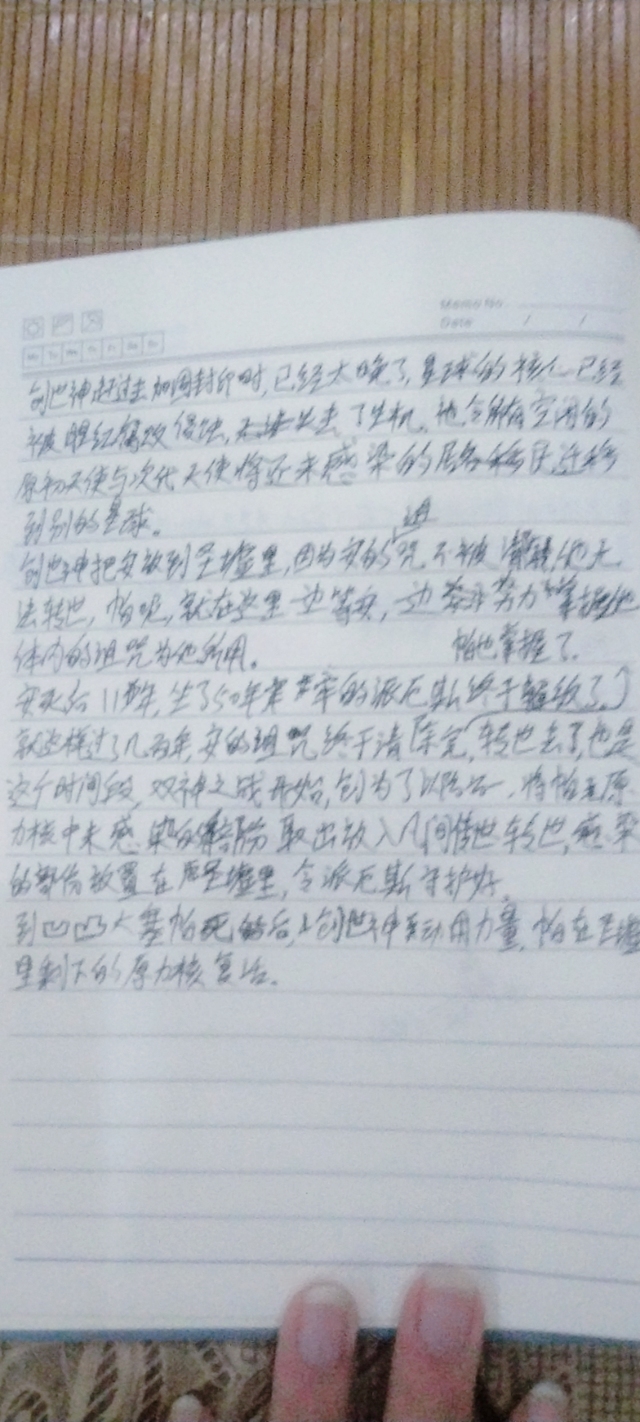 Memo No.
Date / /
Mo Tu We Th Fr Sa Su
创世神赶过去加固封印时,已经太晚了,星球的核心已经
被腐败侵蚀,失去了生机,他令所有空闲的
原初天使与次代天使将还未感染的居民迁移
到别的星球。
诅
创世神把安放到圣墟里,因为安的咒不被清除他无
法转世,帕呢,就在这里一边等安,一边努力掌握他
体内的诅咒为他所用。
帕也掌握了
安死后11年,坐了50年牢的派厄斯终于解放了
就这样过了几百年,安的诅咒终于清除完,转世去了,也是
这个时间段,双神之战开始,创为了以防万一,将帕原
力核中未感染的部份取出放入人间借他转世,感染
的部份放置在圣墟里,令派厄斯守护好。
到凹凸大赛帕死后,创世神动用力量,帕在圣墟
里剩下的原力核复活。